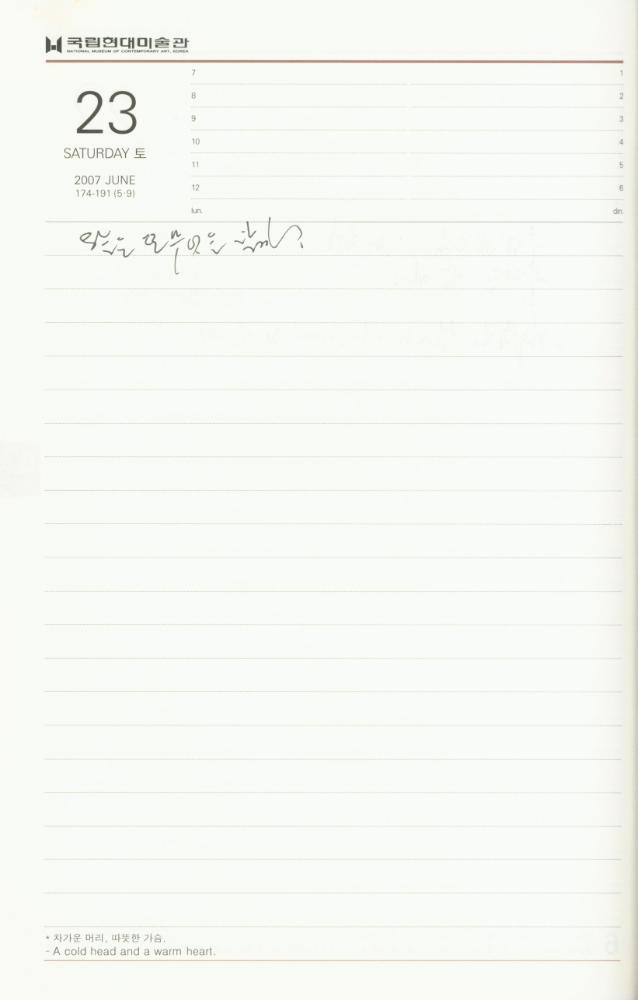 국립현대미술관
NATIONAL MUSEUM OF CONTEMPORARY ART, KOREA
23
SATURDAY 토
2007 JUNE
174-191 (5·9)
7 1
8 2
9 3
10 4
11 5
12 6
lun. din.
* 차가운 머리, 따뜻한 가슴.
- A cold head and a warm heart.